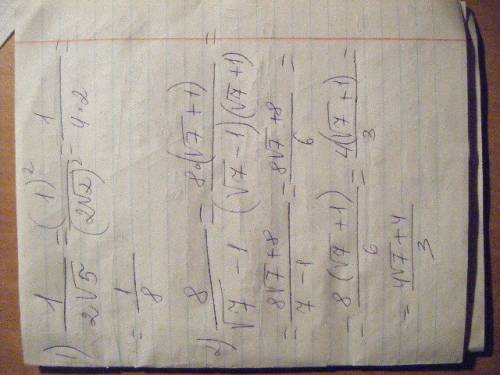 1) 1/(2√5) = (1)²/(2√2)² = 1/(4·2) =
= 1/8
2) 8/(√7 - 1) = 8·(√7 + 1)/((√7 - 1)(√7 + 1)) =
= (8√7 + 8)/(7 - 1) = (8√7 + 8)/6 =
= 8(√7 + 1)/6 = 4(√7 + 1)/3 =
= (4√7 + 4)/3